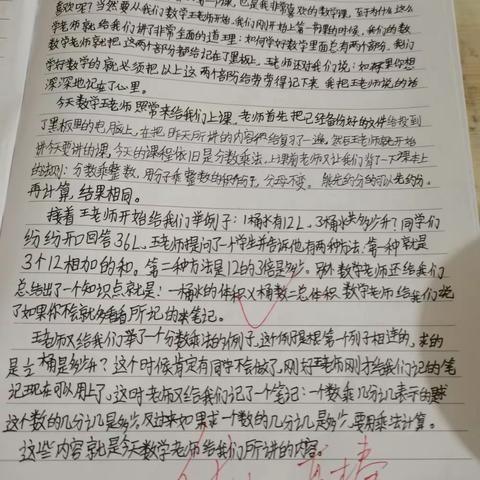 喜欢呢？当然要从我们数学王老师开始，我们刚开始上第一节课的时候，我们的数
学老师就给我们讲了非常全面的道理：如何学好数学里面总有两个部分，我们
数学老师就把这两个部分都给记在了黑板，王老师还对我们说：如果你想
学好数学的就必须把以上这两个部分给劳劳得记下来，我把王老师说的话
深深地记在了心里。
今天数学王老师照常来给我们上课，老师首先把已经备份好的文件给投到
了黑板里的电脑上，在把昨天所讲的内容给复习了一遍，然后王老师就开始
讲今天要讲的课，今天的课程依旧是分数乘法，上课前老师又让我们背了一下课本上
的法则：分数乘整数，用分子乘整数的积作分子，分母不变。能先约分的可以先约分，
再计算，结果相同。
接着王老师开始给我们举例子：1桶水有12L，3桶水共多少升？同学们
纷纷开口回答36L，王老师提问了一个学生并告诉他有两种方法：第一种就是
3个12相加的和。第二种方法是12的3倍是多少。那个数学老师还给我们
总结出了一个知识点就是：一桶水的体积x桶数=总体积 数学老师给我们说
了如果你不会就多看看所记的来笔记。
王老师又给我们举了一个分数乘法的例子，这个例跟第一个例子相连的，求的
是½桶是多少升？这个时候肯定有同学不会做了，刚好王老师刚才给我们记的笔
记现在可以用上了，这时老师又给我们记了一个笔记：一个数乘几分之几表示的
这个数的几分之几是多少，反过来如果求一个数的几分之几是多少，要用乘法计算。
这些内容就是今天数学老师给我们所讲的内容。